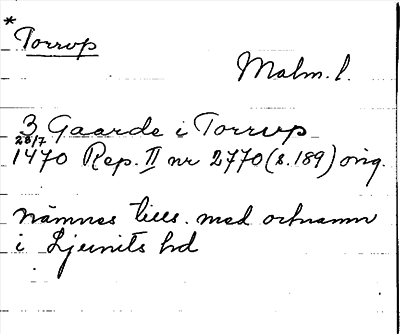 * Torrup
Malm. l.
3 Gaarde i Torrup
28/7
1470 Rep. II nr 2770 (s. 189) orig.
nämnes tills. med ortnamn
i Ljunits hd